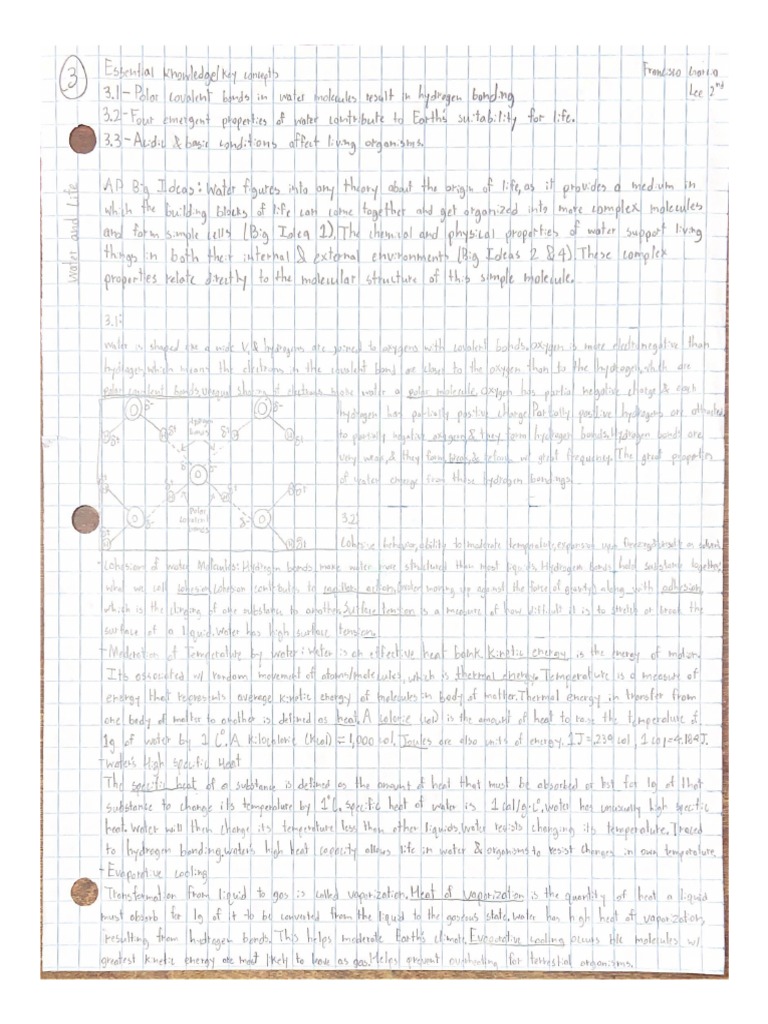 3
Essential Knowledge/Key concepts
Francisco
Lee 2nd
3.1-Polar covalent bonds in water molecules result in hydrogen bonding
3.2-Four emergent properties of water contribute to Earth's suitability for life.
3.3-Acidic & basic conditions affect living organisms.
water and life
AP Big Ideas: Water figures into any theory about the origin of life, as it provides a medium in
which the building blocks of life can come together and get organized into more complex molecules
and form simple cells (Big Idea 1). The chemical and physical properties of water support living
things in both their internal & external environments (Big Ideas 2 & 4). These complex
properties relate directly to the molecular structure of this simple molecule.
3.1:
water is shaped like a wide V, & hydrogens are joined to oxygens with covalent bonds. oxygen is more electronegative than
hydrogen, which means the electrons in the covalent bond are closer to the oxygen than to the hydrogen, which are
polar covalent bonds, unequal sharing of electrons make water a polar molecule. oxygen has partial negative charge & each
hydrogen has partially positive charge. Partially positive hydrogens are attracted
to partially negative oxygens & they form hydrogen bonds. Hydrogen bonds are
very weak, & they form, break, & reform w/ great frequency. The great properties
of water emerge from these hydrogen bondings.
Hydrogen
bonds
Polar
covalent
bonds
3.2:
Cohesive behavior, ability to moderate temperature, expansion upon freezing, versatile as solvent
-Cohesion of water Molecules: Hydrogen bonds make water more structured than most liquids. Hydrogen bonds hold substance together
what we call cohesion. Cohesion contributes to capillary action, (water moving up against the force of gravity) along with adhesion,
which is the clinging of one substance to another. Surface tension is a measure of how difficult it is to stretch or break the
surface of a liquid. Water has high surface tension.
-Moderation of Temperature by water: Water is an effective heat bank. Kinetic energy is the energy of motion.
Its associated w/ random movement of atoms/molecules, which is thermal energy. Temperature is a measure of
energy that represents average kinetic energy of molecules in body of matter. Thermal energy in transfer from
one body of matter to another is defined as heat. A calorie (cal) is the amount of heat to raise the temperature of
1g of water by 1 C°. A Kilochlorie (Kcal) = 1,000 cal. Joules are also units of energy. 1J=.239 cal, 1 cal=4.184J.
-Water's High Specific Heat
The specific heat of a substance is defined as the amount of heat that must be absorbed or lost for 1g of that
substance to change its temperature by 1°C. specific heat of water is 1 cal/g·C°. water has unusually high specific
heat. Water will then change its temperature less than other liquids. Water resists changing its temperature. Traced
to hydrogen bonding. water's high heat capacity allows life in water & organisms to resist changes in own temperature.
-Evaporative cooling
Transformation from liquid to gas is called vaporization. Heat of vaporization is the quantity of heat a liquid
must absorb for 1g of it to be converted from the liquid to the gaseous state. Water has high heat of vaporization,
resulting from hydrogen bonds. This helps moderate Earth's climate. Evaporative cooling occurs b/c molecules w/
greatest kinetic energy are most likely to leave as gas. Helps prevent overheating for terrestrial organisms.